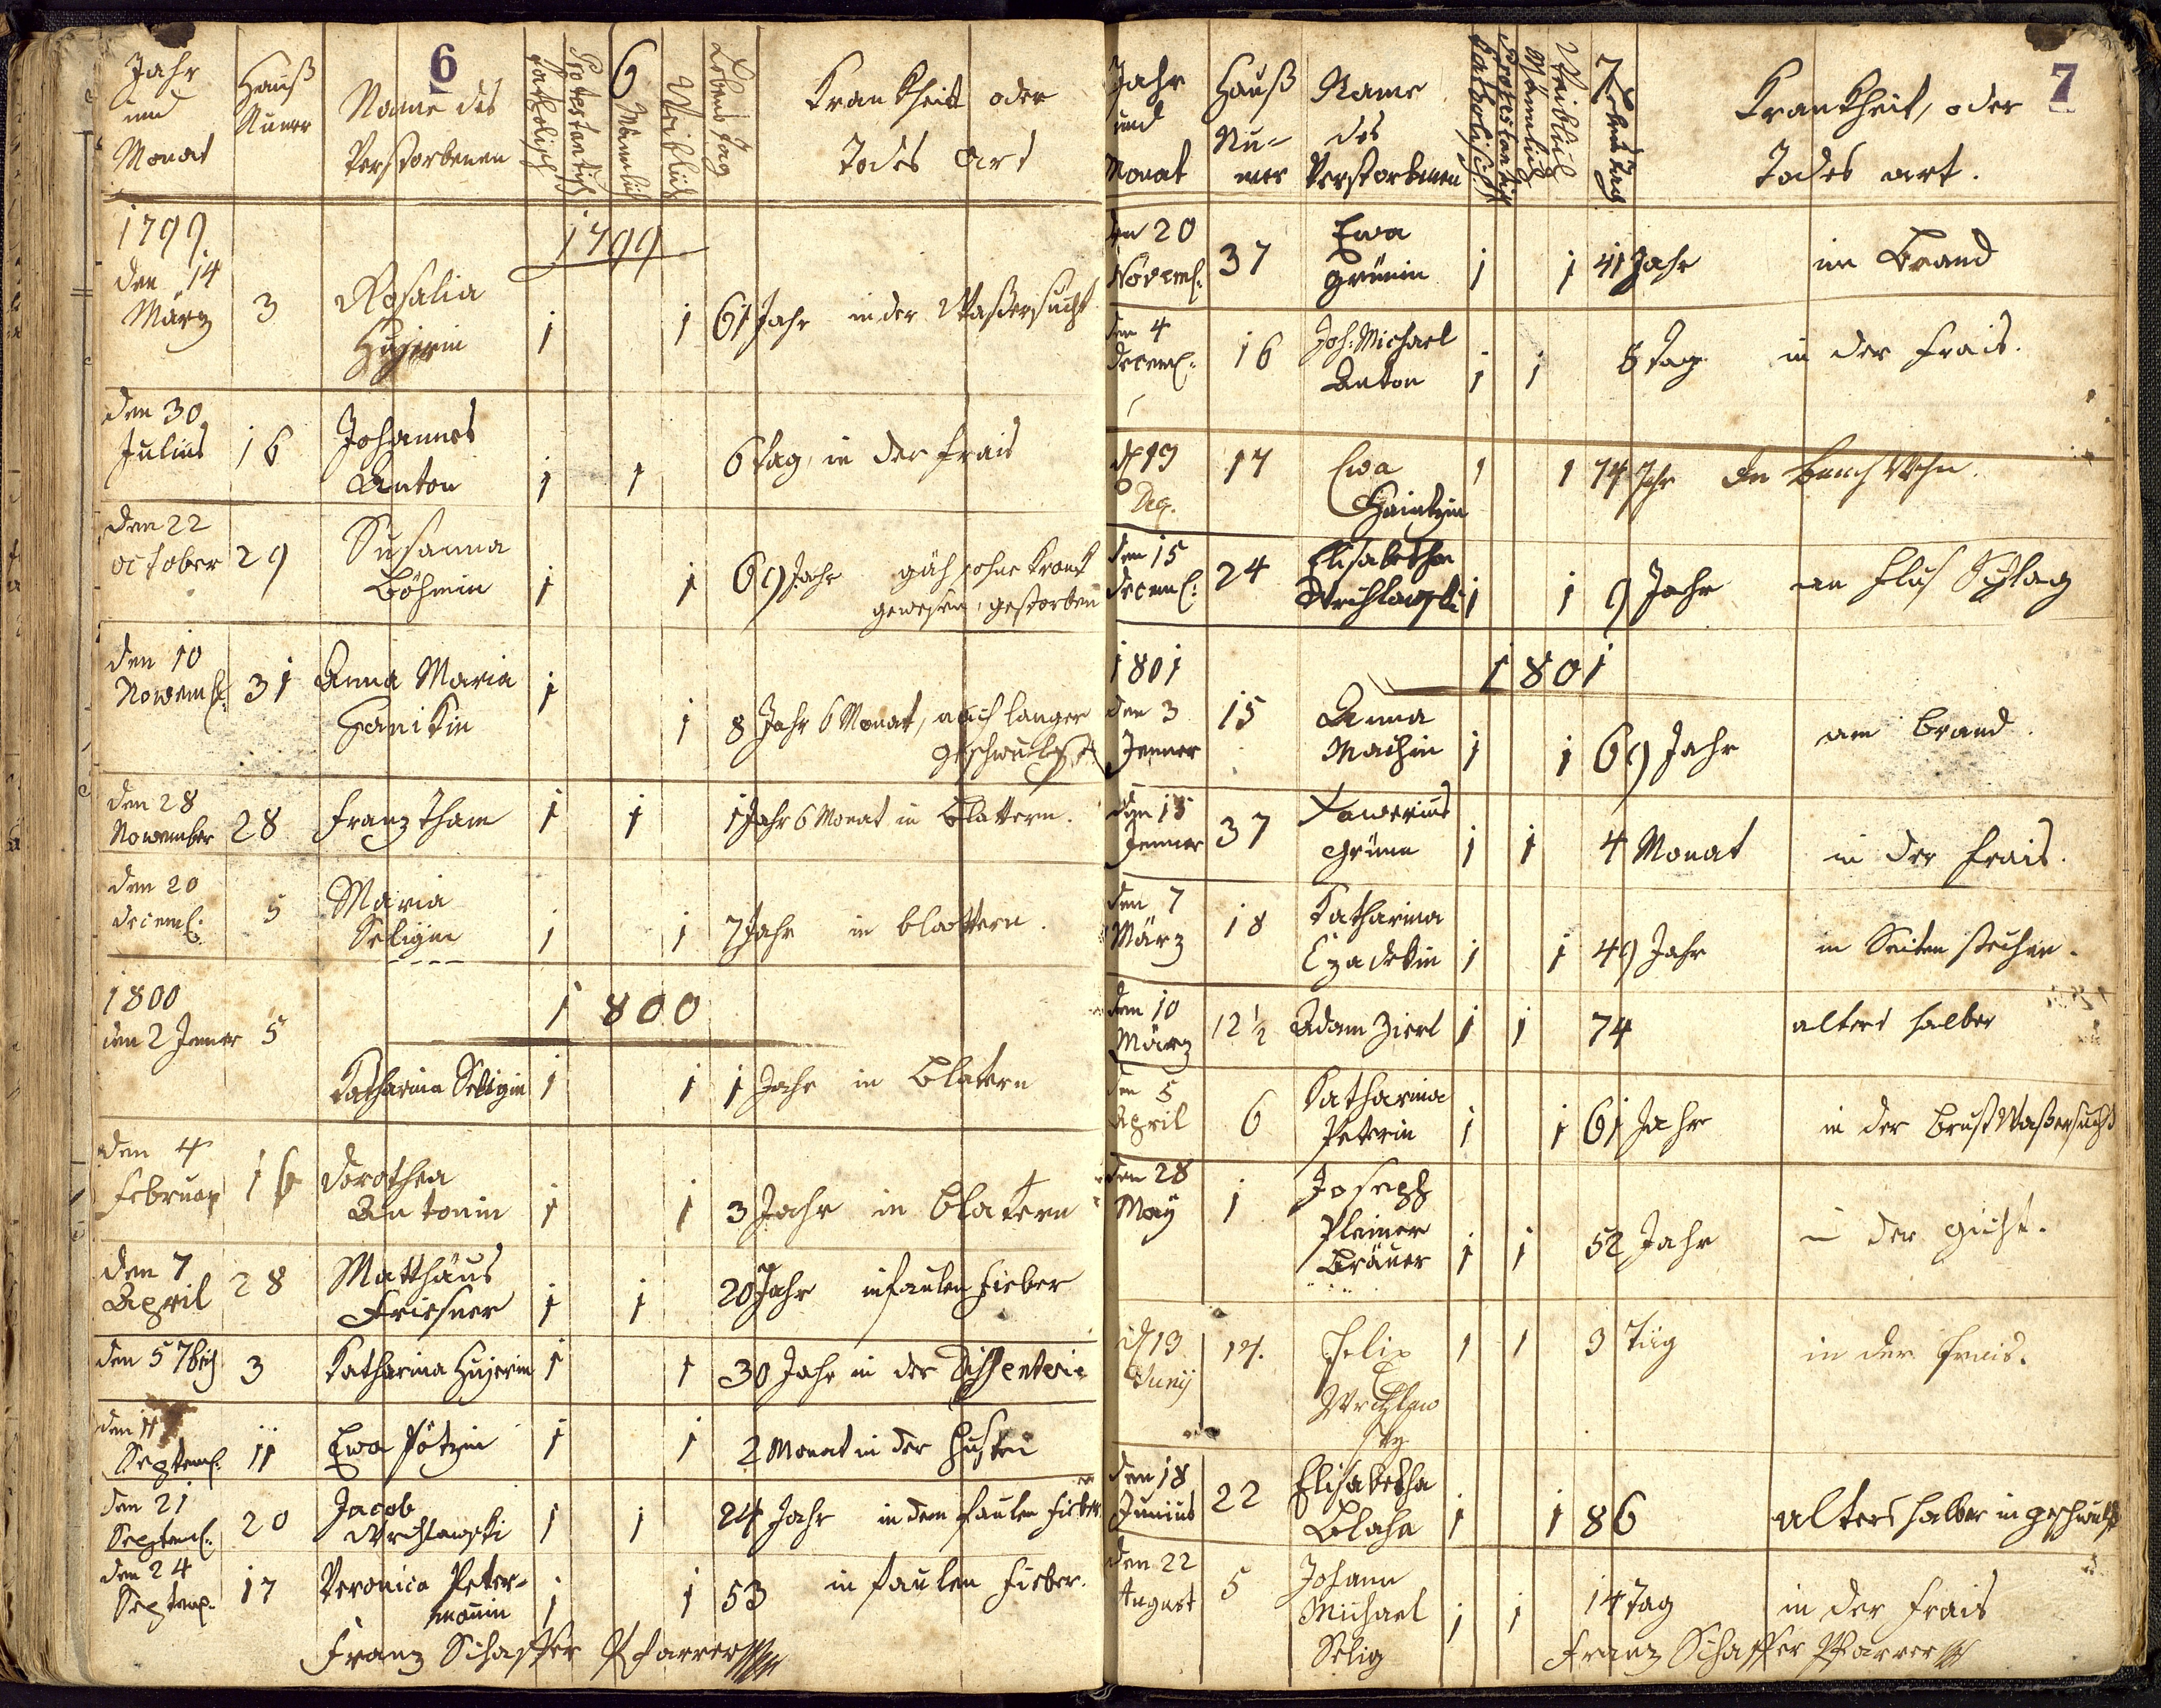 6
6
Jahr
und
Monat
Hauß
Numer
Name des
Verstorbenen
Katholisch
Protestantisch
Mänlich
Weiblich
Lebens Tag
Krankheit oder
Todes Art
1799
1799
den 14
März
3
Rosalia
Hujerin
1 1 61 Jahr in der Waßersucht
den 30
Julius 16 Johannes
Anton 1 1 6 tag, in der frais
den 22
october 29 Susanna
Böhmin 1 1 69 Jahr gäh, ohne krank
gewesen, gestorben
den 10
Novemb: 31 Anna Maria 1
Hanikin 1 8 Jahr 6 Monat, nach langer
geschwulst
den 28
November 28 Franz Tham 1 1 1 Jahr 6 Monat in Blattern.
den 20
decemb: 5 Maria
Seligin 1 1 7 Jahr in blattern.
1800
1800
den 2 Jenner 5
Katharina Seligin 1 1 1 Jahr in Blatern
den 4
Februar 16 dorothea
Antonin 1 1 3 Jahr in Blatern
den 7
April 28 Matthäus
Friesner 1 1 20 Jahr in faulen Fieber
den 5 7bris 3 Katharina Hujerin 1 1 30 Jahr in der Dissenterie
den 11
Septemb. 11 Ewa Pötzin 1 1 2 Monat in der Husten
den 21
Septemb: 20 Jacob
Wrchlawski 1 1 24 Jahr in dem faulen Fieber
den 24
Septemb. 17 Veronica Peter-
manin 1 1 53 in faulen Fieber.
Franz Schaffer Pfarrer
7
Jahr
und
Monat
Hauß
Nu=
mer
Name
des
Verstorbenen
Katholisch
Protestantisch
Mänlich
Weiblich
Lebens Tag
Krankheit, oder
Todes art.
den 20
Novemb: 37 Ewa
Grünin 1 1 41 Jahr im Brand
den 4
decemb: 16 Joh: Michael
Anton 1 1 8 tag in der Frais.
d 13 17 Ewa 1 1 74 Jahr
Dec.
den 15
decemb: 24 Elisabetha
Wrchlawski 1 1 9 Jahr
1801
1801
den 3
Jenner 15 Anna
Machin 1 1 69 Jahr am brand.
den 15
Jenner 37 Xaverius
Grünn 1 1 4 Monat in der Frais.
den 7
März 18 Katharina
Czadekin 1 1 49 Jahr in Seiten stechen.
den 10
März 12 ½ Adam Zierl 1 1 74 alters halber
den 5
April 6 Katharina
Peterin 1 1 61 Jahr in der Brust Waßersucht
den 28
May 1 Joseph
Pleiner
Bräuer 1 1 52 Jahr in der gicht.
d 13
Junij 17. Felix 1 1 3 Täg in der Frais.
Wrchlaw
sky
den 18
Junius 22 Elisabetha
Blaha 1 1 86 Alters halber in geschwulst
den 22
August 5 Johann
Michael
Selig 1 1 14 tag in der Frais
Franz Schaffer Pfarrer